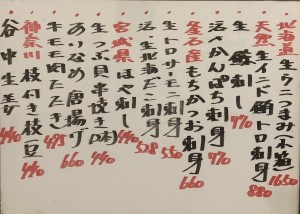 北海道 生ウニつまみ(不漁) 1650
天然 生インド鮪トロ刺身 880
生 鯵刺し 770
活〆かんぱち刺身 770
釜石産 もちかつお刺身 660
生トロサーモン刺身 550
活〆北海だこ刺身 528
宮城県 ほや刺し 440
生つぶ貝串焼き 440
あいなめ唐揚げ 660
牛モモ肉たたき 495
神奈川 枝付き枝豆 440
谷中生姜 440